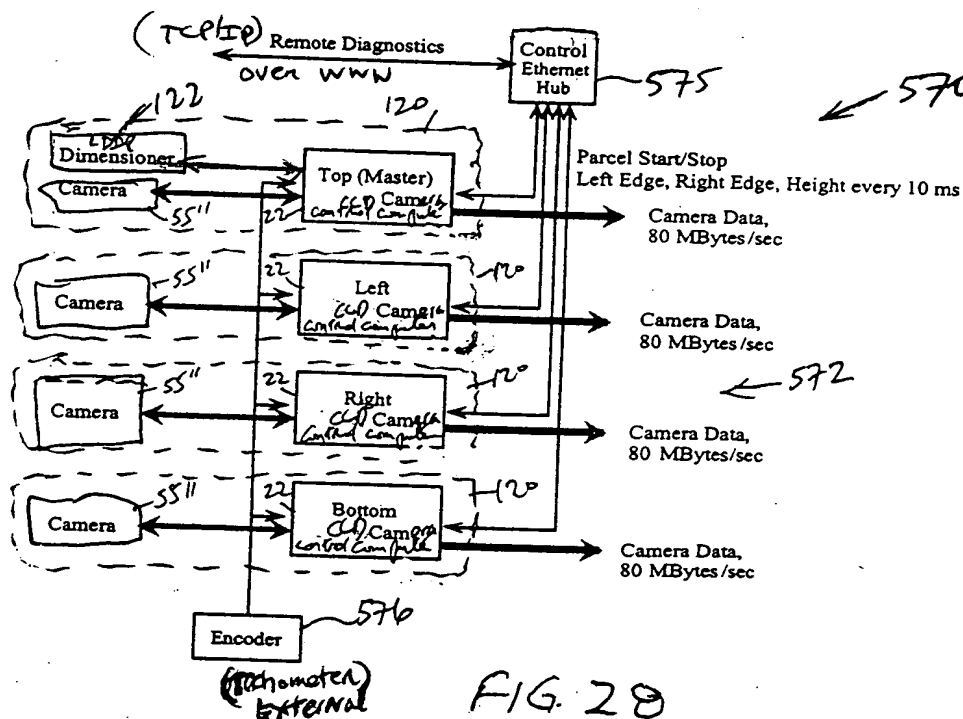 (TCP/IP)
Remote Diagnostics
over WWW
Control
Ethernet
Hub
575
570
122
120
LDDP
Dimensioner
Camera
55"
22
Top (Master)
CCD Camera
control computer
Parcel Start/Stop
Left Edge, Right Edge, Height every 10 ms
Camera Data,
80 MBytes/sec
55"
Camera
22
Left
CCD Camera
control computer
120
Camera Data,
80 MBytes/sec
55"
Camera
22
Right
CCD Camera
control computer
120
572
Camera Data,
80 MBytes/sec
55"
Camera
22
Bottom
CCD Camera
control computer
120
Camera Data,
80 MBytes/sec
Encoder
576
(tachometer)
External
FIG. 28